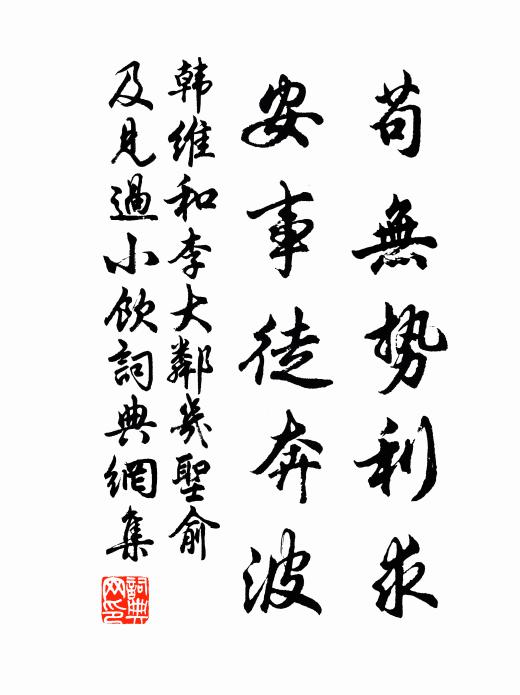 苟無勢利求
安事徒奔波
韩維和李大鄰幾聖俞
及見過小飲詞典網集
詞典网印